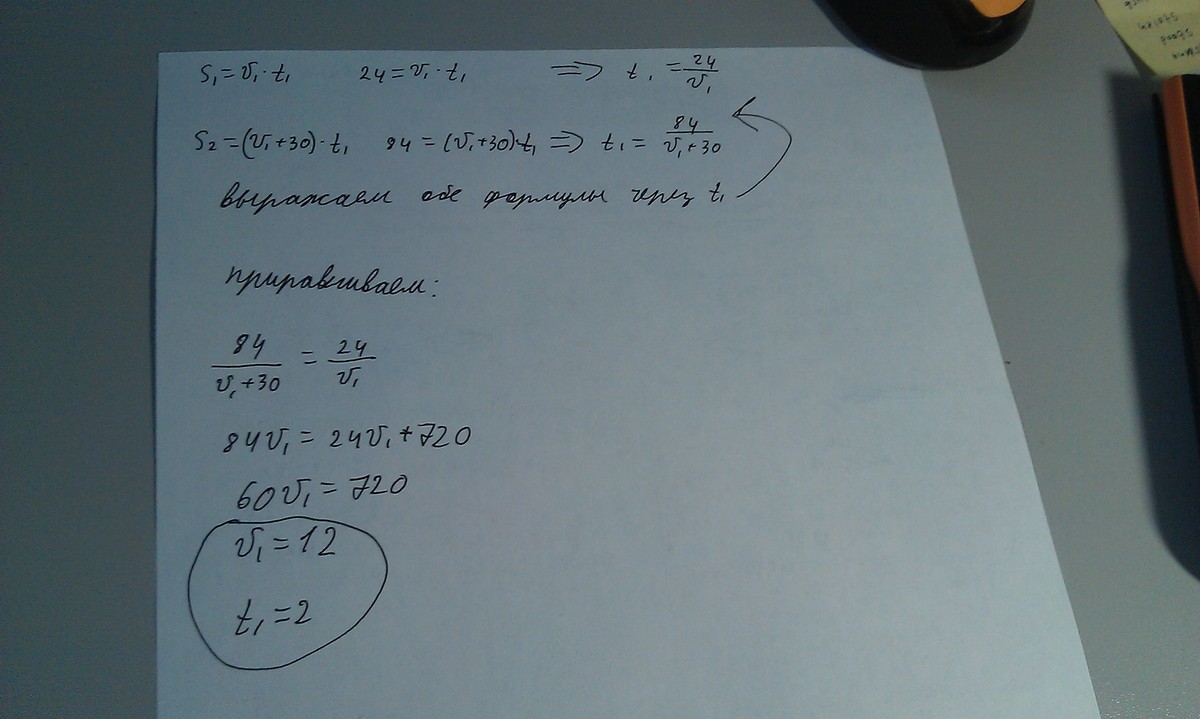 S₁ = v₁·t₁ 24 = v₁·t₁ => t₁ = 24/v₁
S₂ = (v₁+30)·t₁ 84 = (v₁+30)·t₁ => t₁ = 84/(v₁+30)
выражаем обе формулы через t₁
приравниваем:
84/(v₁+30) = 24/v₁
84v₁ = 24v₁+720
60v₁ = 720
v₁ = 12
t₁ = 2